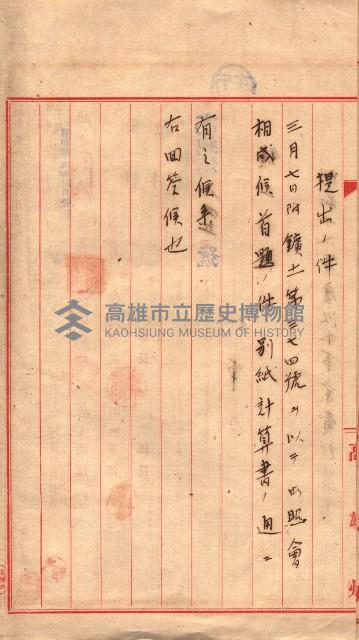 提出ノ件
三月七日附鑛土第三七四號ヲ以テ御照會
相成候首題ノ件別紙計算書ノ通ニ
有之候条
右回答候也
高雄州
高雄市立歷史博物館
KAOHSIUNG MUSEUM OF HISTORY